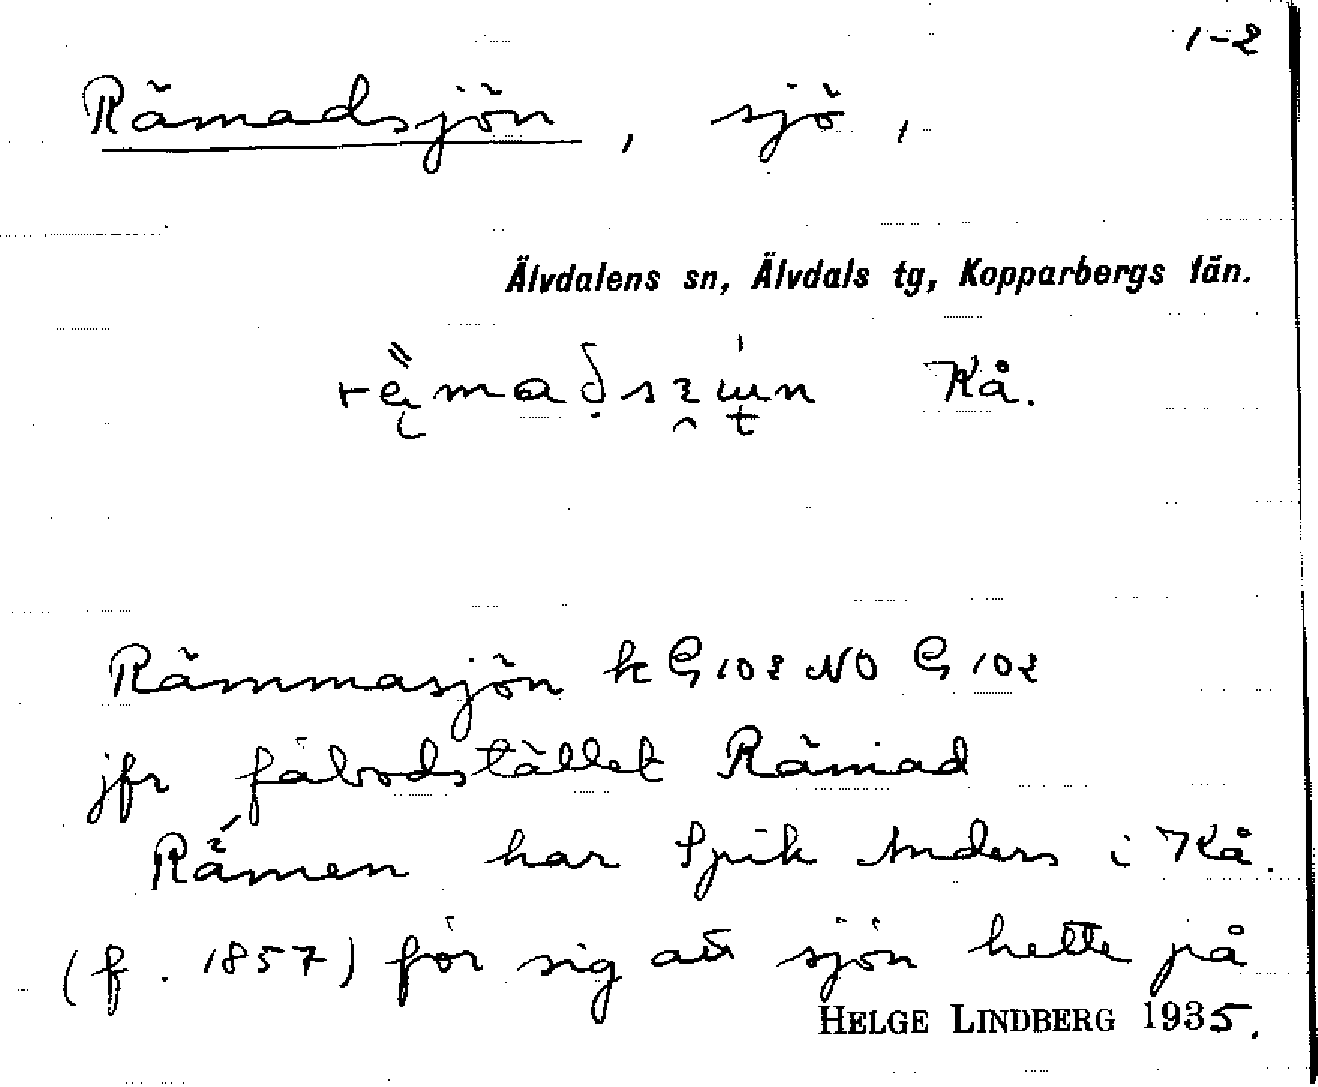 1-2
Rämadsjön, sjö,
Älvdalens sn, Älvdals tg, Kopparbergs län.
Kå.
Rämmasjön k G 102 NO G 102
jfr fäbodstället Rämad
Rämen har Spik Anders i Kå.
(f. 1857) för sig att sjön hette på
HELGE LINDBERG 1935.